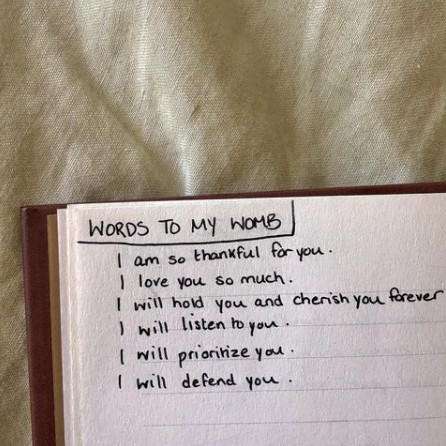 WORDS TO MY WOMB
I am so thankful for you.
I love you so much.
I will hold you and cherish you forever
I will listen to you.
I will prioritize you.
I will defend you.